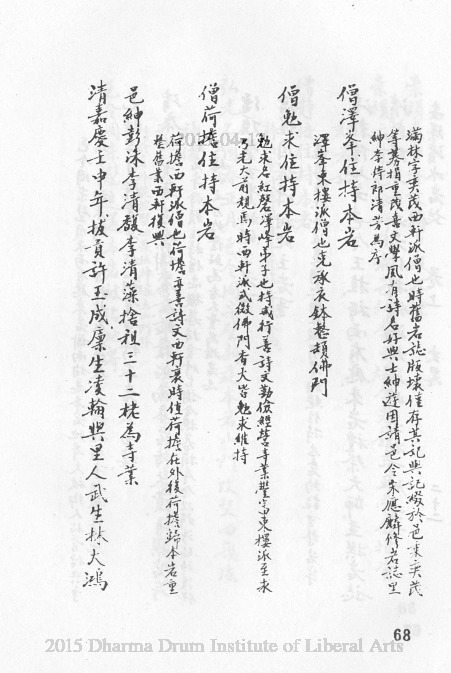 瑞林字奕茂西軒派僧也時舊岩誌版壞僅存其記與記綴於邑末奕茂
等募捐重茂喜文學風有詩名好與士紳遊因請邑令朱應麟修岩誌里
紳李侍郎清芳為序
僧澤峯住持本岩
澤峯東樓派僧也克承衣鉢整頓佛門
僧勉求住持本岩
勉求名紅磬澤峰弟子也持戒行善詩文勤儉經營寺業豐富東樓派至求
乃光大前規焉時西軒派式微佛門香火皆勉求維持
僧荷擔住持本岩
荷擔西軒派僧也荷擔亦善詩文西軒衰時值荷擔在外後荷擔歸本岩重
整舊業西軒復興
邑紳彭洙李清馥李清藻捨祖三十二栳為寺業
清嘉慶壬申年拔貢許玉成廩生凌翰與里人武生林大鴻
2015 Dharma Drum Institute of Liberal Arts
68